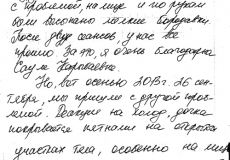 с проблемой, на лице и по рукам
были высыпано мелкие бородавки.
После двух сеансов, у нас все
прошло. За это, я очень благодарна
Сауле Каратаевне.
Но, вот осенью 2013 г. 26 сен-
тября, мы пришли с другой проб-
лемой. Реакция на холод, дочка
покрывается пятнами на открытых
участках тела, особенно на лице